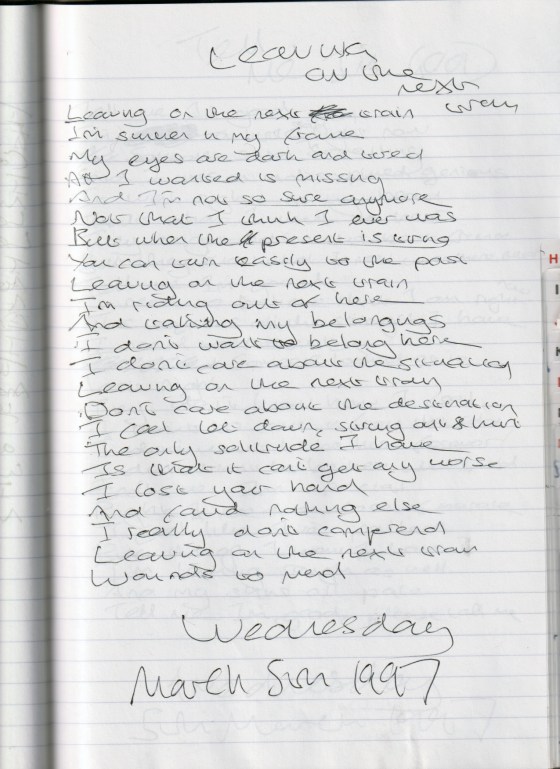 Leaving
on the
next
train
Leaving on the next train
I'm sinner in my frame
My eyes are dark and tired
All I wanted is missing
And I'm not so sure anymore
Not that I think I ever was
But when the present is wrong
You can turn easily to the past
Leaving on the next train
I'm riding out of here
And taking my belongings
I don't want to belong here
I don't care about the
Leaving on the next train
Don't care about the destination
I feel let down, strung out & hurt
The only solitude I have
Is that it can't get any worse
I lose your hand
And find nothing else
I really don't comprend
Leaving on the next train
Wounds to mend
Wednesday
March 5th 1997